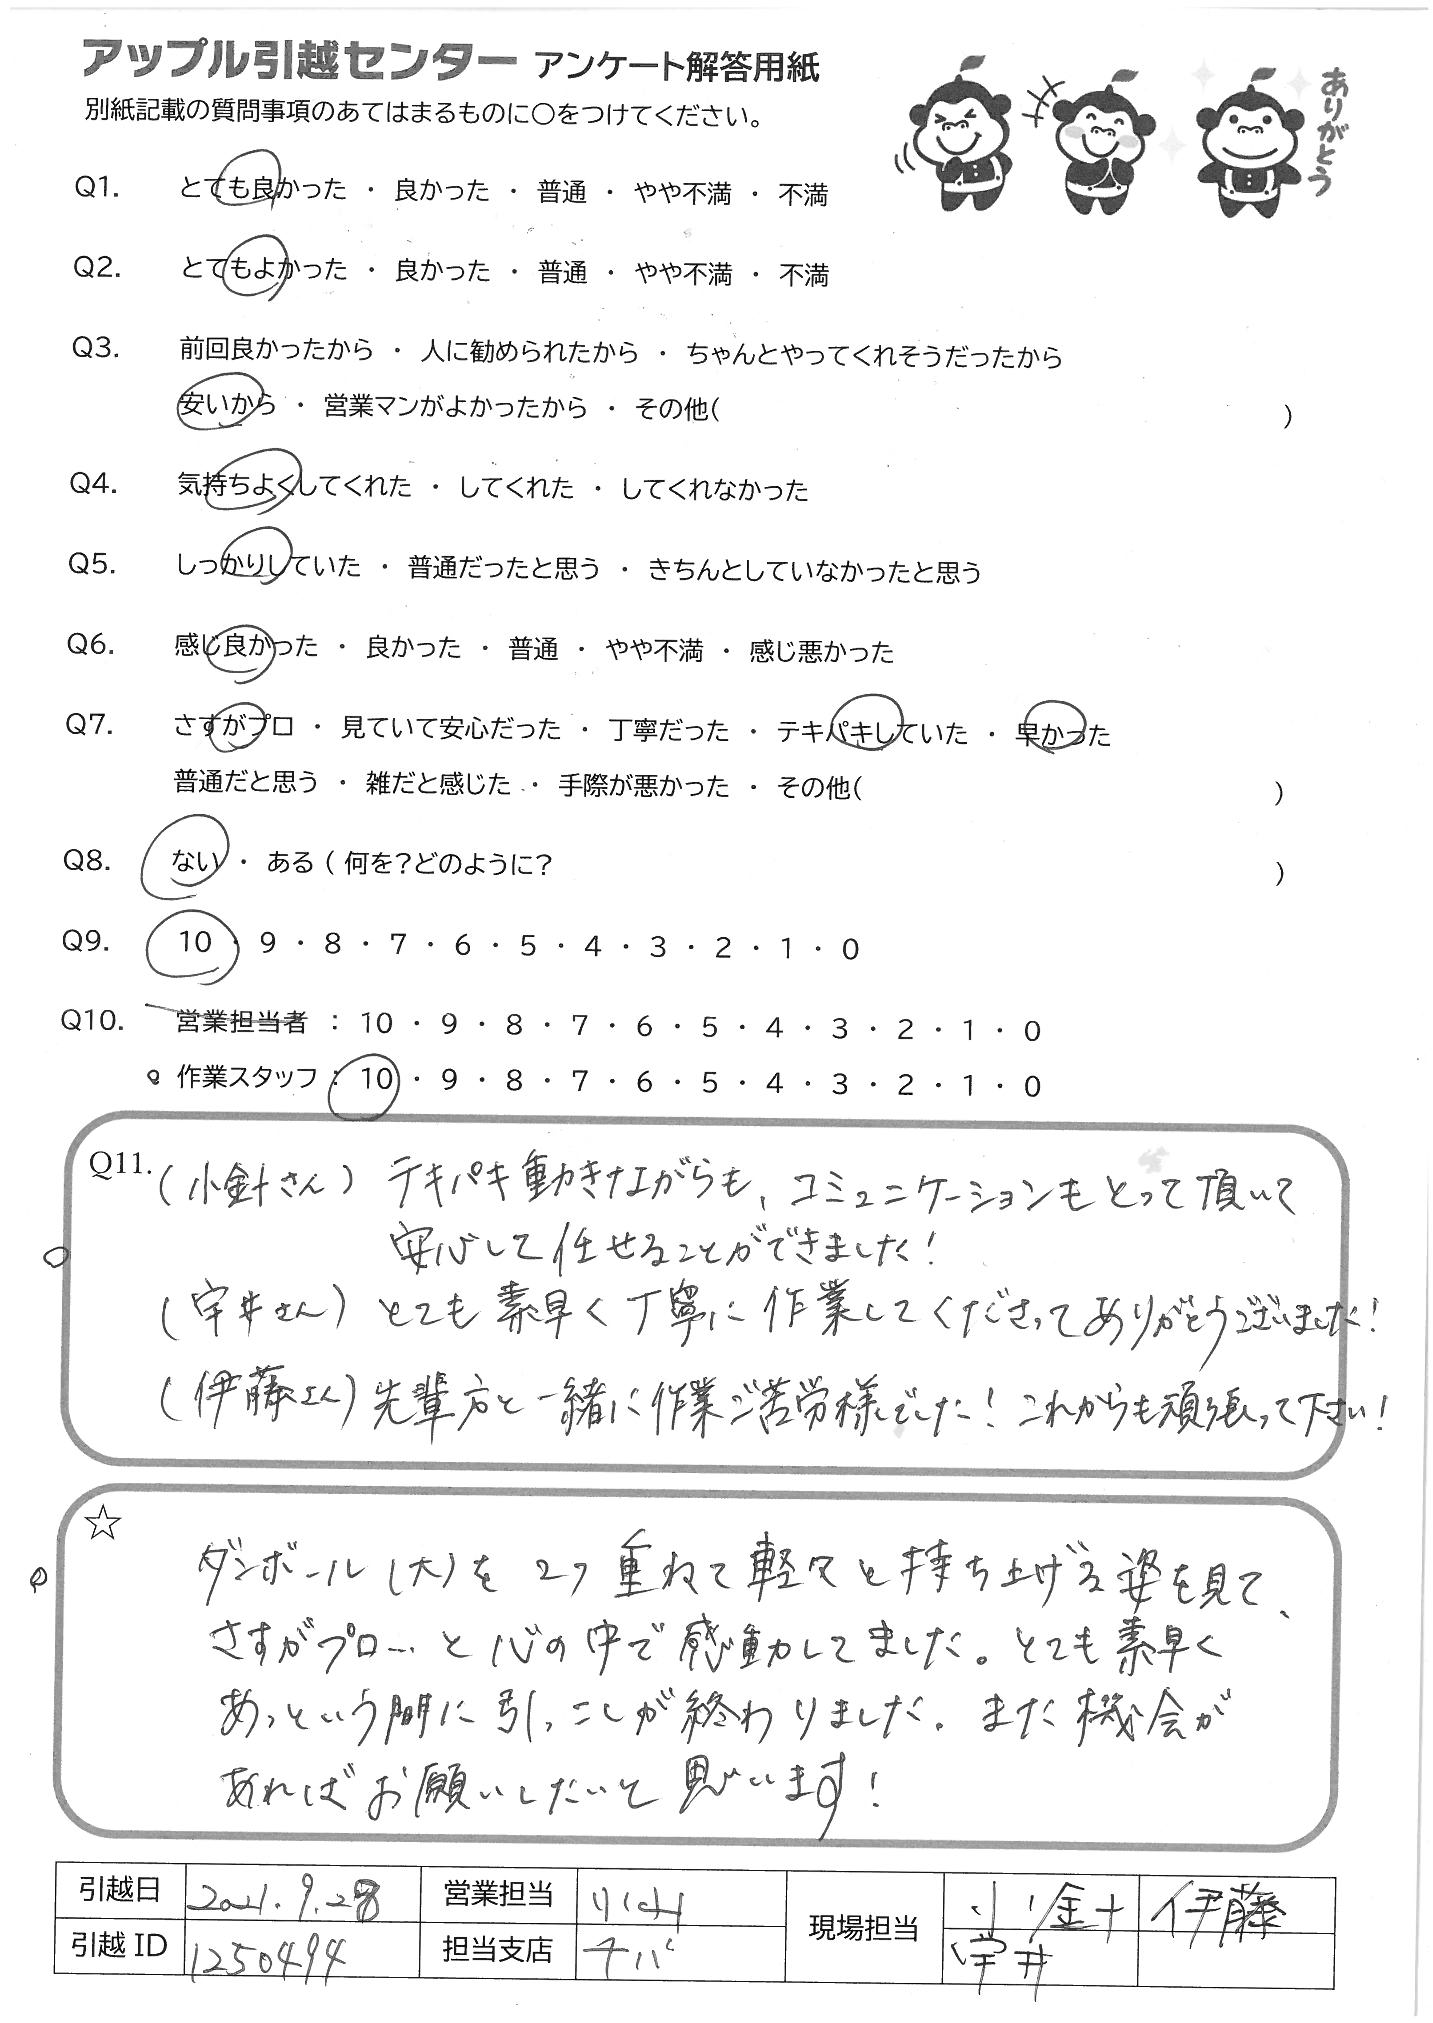 アップル引越センター アンケート解答用紙
別紙記載の質問事項のあてはまるものに○をつけてください。
ありがとう
Q1. とても良かった ・ 良かった ・ 普通 ・ やや不満 ・ 不満
Q2. とてもよかった ・ 良かった ・ 普通 ・ やや不満 ・ 不満
Q3. 前回良かったから ・ 人に勧められたから ・ ちゃんとやってくれそうだったから
安いから ・ 営業マンがよかったから ・ その他( )
Q4. 気持ちよくしてくれた ・ してくれた ・ してくれなかった
Q5. しっかりしていた ・ 普通だったと思う ・ きちんとしていなかったと思う
Q6. 感じ良かった ・ 良かった ・ 普通 ・ やや不満 ・ 感じ悪かった
Q7. さすがプロ ・ 見ていて安心だった ・ 丁寧だった ・ テキパキしていた ・ 早かった
普通だと思う ・ 雑だと感じた ・ 手際が悪かった ・ その他( )
Q8. ない ・ ある ( 何を?どのように? )
Q9. 10 ・ 9 ・ 8 ・ 7 ・ 6 ・ 5 ・ 4 ・ 3 ・ 2 ・ 1 ・ 0
Q10. 営業担当者 : 10 ・ 9 ・ 8 ・ 7 ・ 6 ・ 5 ・ 4 ・ 3 ・ 2 ・ 1 ・ 0
作業スタッフ : 10 ・ 9 ・ 8 ・ 7 ・ 6 ・ 5 ・ 4 ・ 3 ・ 2 ・ 1 ・ 0
Q11. (小針さん) テキパキ動きながらも、コミュニケーションもとって頂いて
安心して任せることができました!
(宇井さん) とても素早く丁寧に作業してくださってありがとうございました!
(伊藤さん) 先輩方と一緒に作業ご苦労様でした! これからも頑張って下さい!
☆
ダンボール(大)を2つ重ねて軽々と持ち上げる姿を見て、
さすがプロ…と心の中で感動してました。とても素早く
あっという間に引っこしが終わりました。また機会が
あればお願いしたいと思います!
引越日 2021.9.28 営業担当 リッチ 現場担当 小針 伊藤
引越ID 1250494 担当支店 チバ 宇井